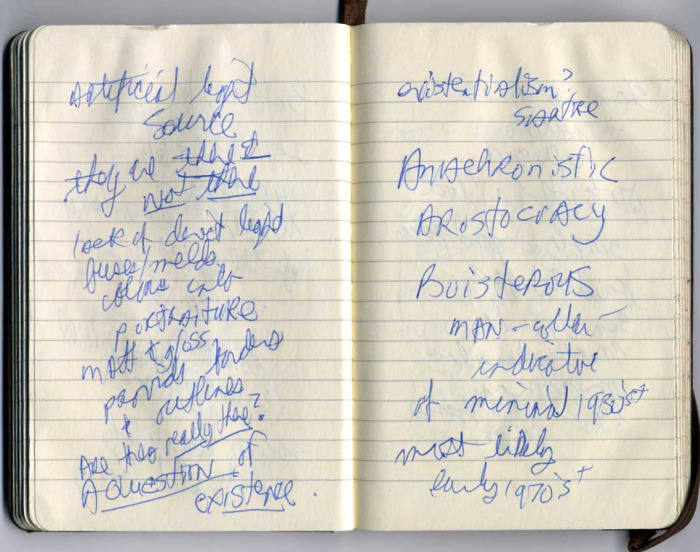 Artificial light
Source
they are there &
not there
lack of direct light
fuses/melds
colors into
PORTRAITURE
matt & gloss
provids borders
& outlines
Are they really there?
A QUESTION of
existence.
existentialism?
Sartre
ANAchRonistic
AROSTOCRACY
BoisteROUS
MAN-
indicative
of minimal 1930's+
most likely
early 1970's+